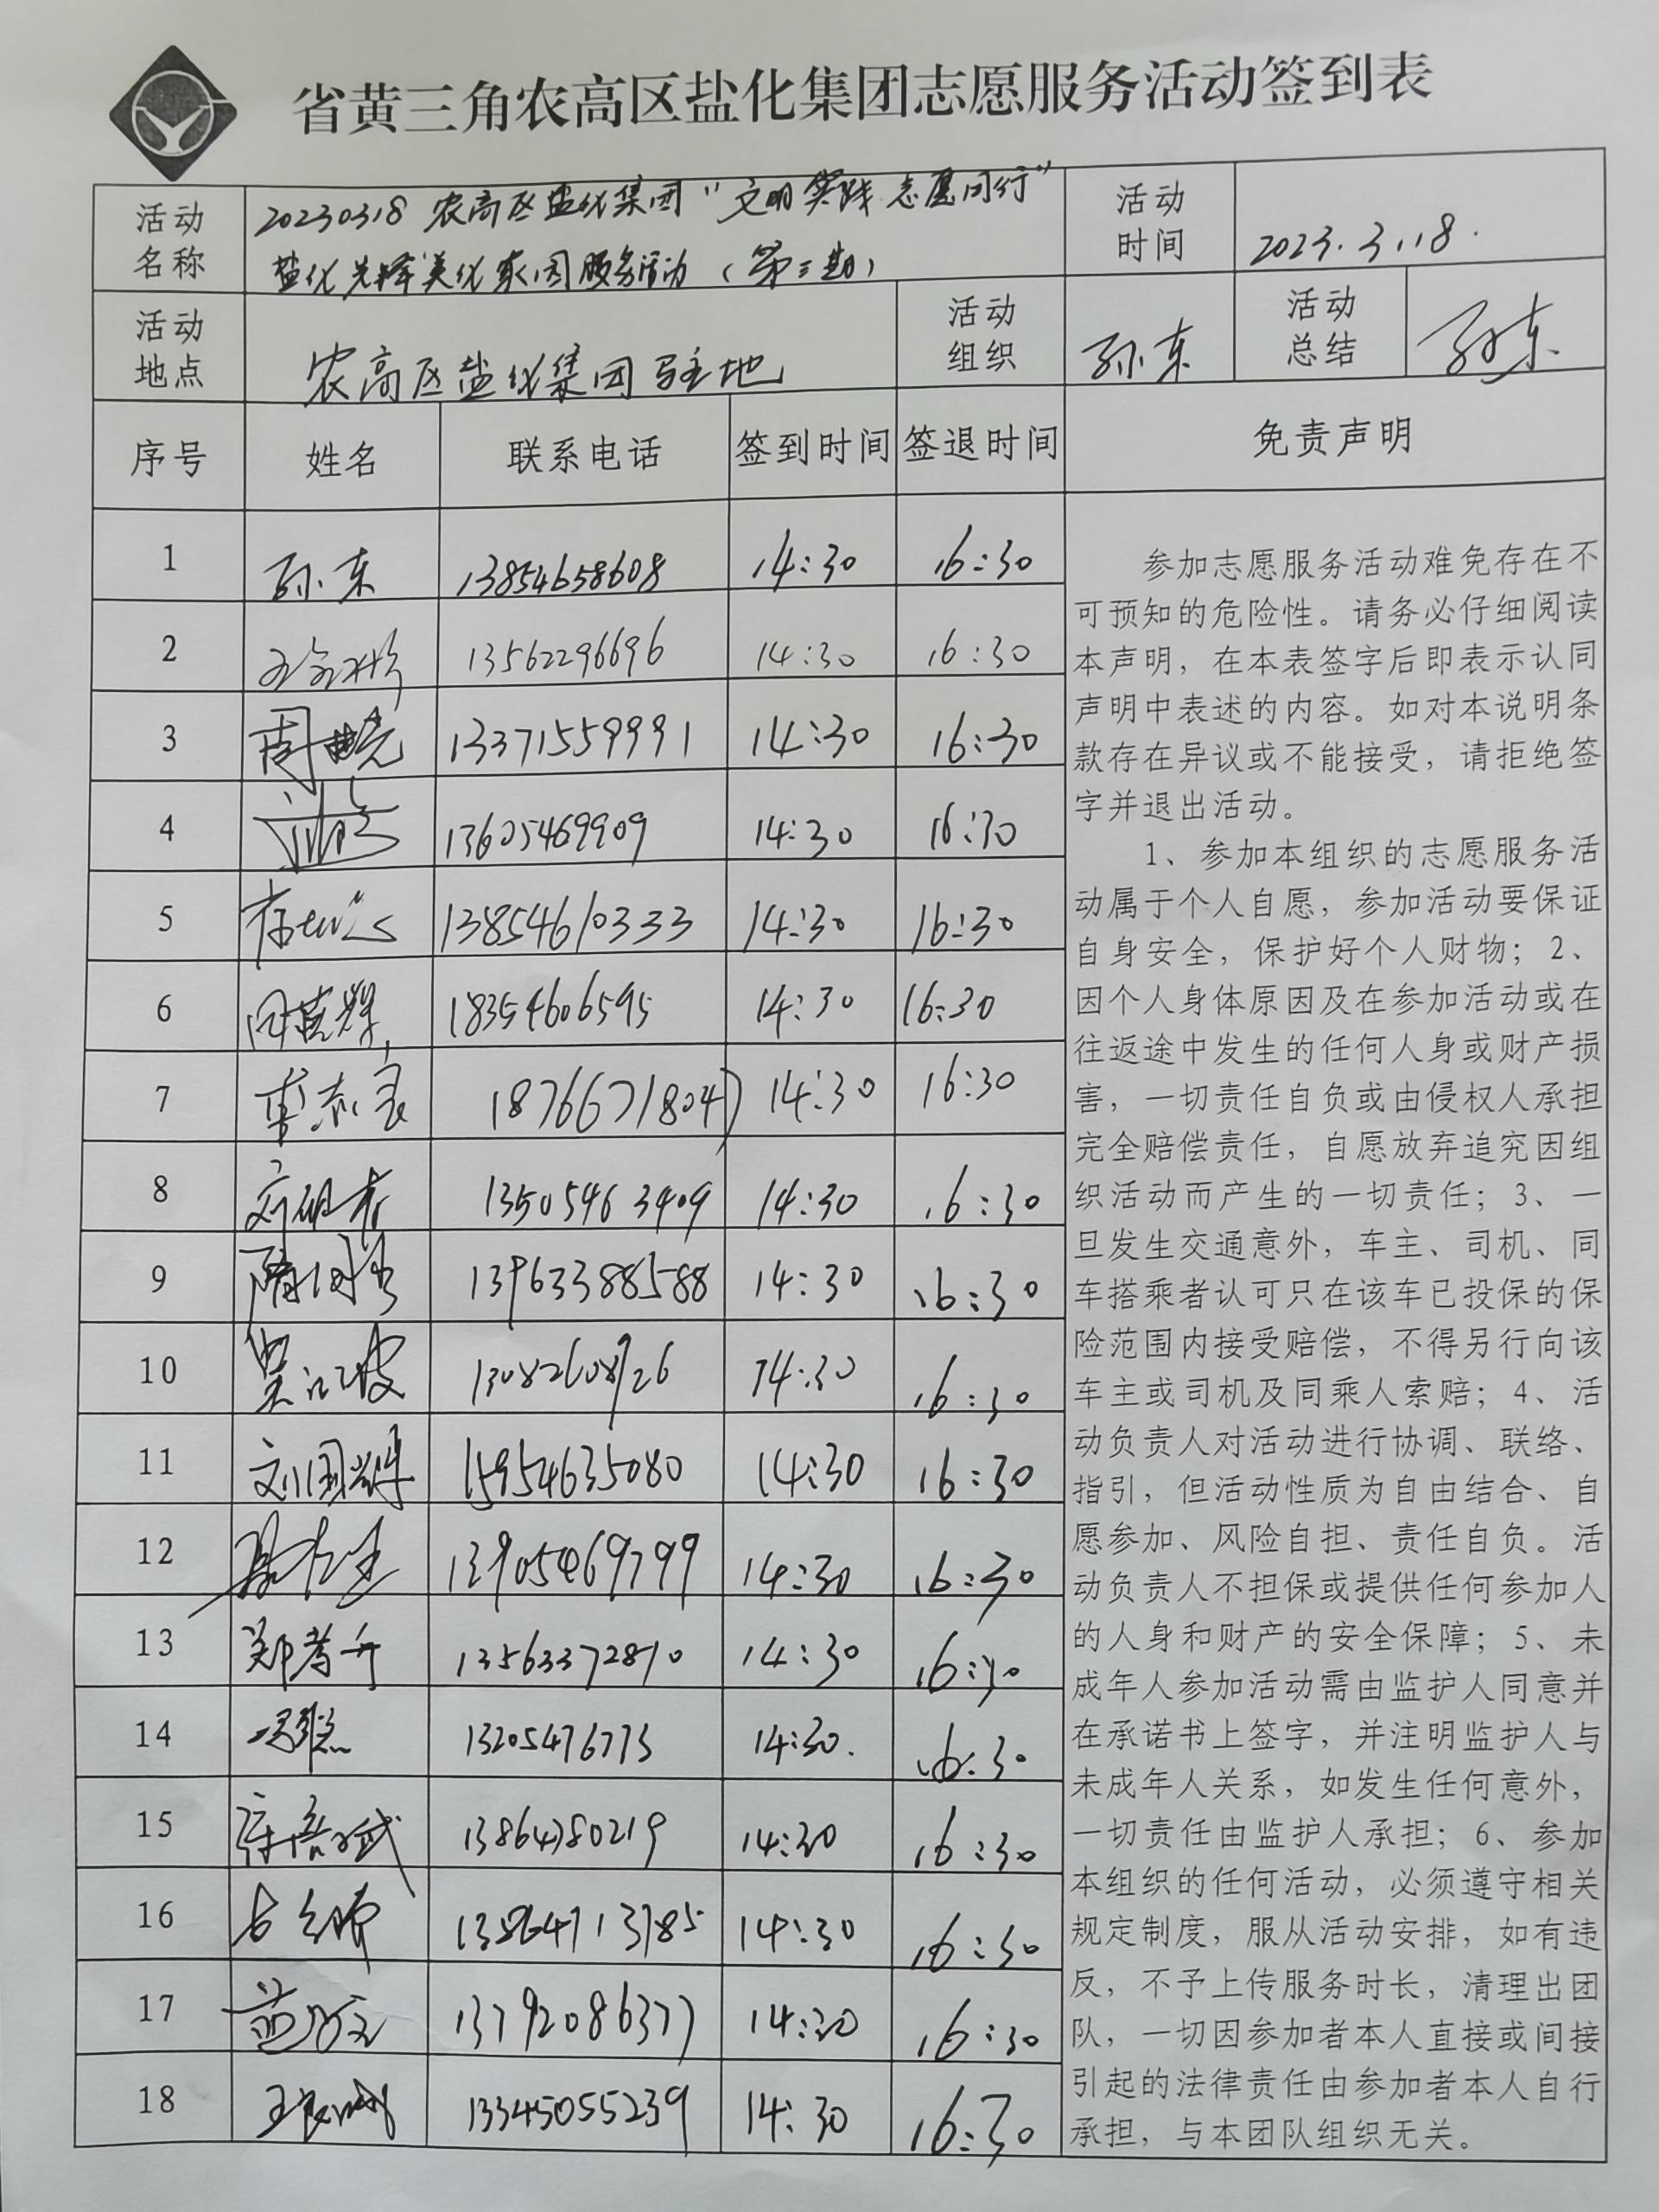 省黄三角农高区盐化集团志愿服务活动签到表
活动名称 20230318 农高区盐化集团“文明实践 志愿同行”
盐化先锋美化家园服务活动（第三期）
活动时间 2023.3.18.
活动地点 农高区盐化集团驻地 活动组织 孙东 活动总结 孙东
序号 姓名 联系电话 签到时间 签退时间 免责声明
1 孙东 13854658608 14:30 16:30
2 13562296696 14:30 16:30
3 周晓 13371559991 14:30 16:30
4 13605469909 14:30 16:30
5 13854610333 14:30 16:30
6 18354606595 14:30 16:30
7 李志良 18766718047 14:30 16:30
8 13505463409 14:30 16:30
9 13963388588 14:30 16:30
10 吴江波 13082608726 14:30 16:30
11 刘国辉 15954635080 14:30 16:30
12 13905469799 14:30 16:30
13 郑孝升 13563372810 14:30 16:30
14 13205476773 14:30. 16:30
15 13864780219 14:30 16:30
16 13864713785 14:30 16:30
17 13792086377 14:30 16:30
18 13345055239 14:30 16:30
参加志愿服务活动难免存在不
可预知的危险性。请务必仔细阅读
本声明，在本表签字后即表示认同
声明中表述的内容。如对本说明条
款存在异议或不能接受，请拒绝签
字并退出活动。
1、参加本组织的志愿服务活
动属于个人自愿，参加活动要保证
自身安全，保护好个人财物；2、
因个人身体原因及在参加活动或在
往返途中发生的任何人身或财产损
害，一切责任自负或由侵权人承担
完全赔偿责任，自愿放弃追究因组
织活动而产生的一切责任；3、一
旦发生交通意外，车主、司机、同
车搭乘者认可只在该车已投保的保
险范围内接受赔偿，不得另行向该
车主或司机及同乘人索赔；4、活
动负责人对活动进行协调、联络、
指引，但活动性质为自由结合、自
愿参加、风险自担、责任自负。活
动负责人不担保或提供任何参加人
的人身和财产的安全保障；5、未
成年人参加活动需由监护人同意并
在承诺书上签字，并注明监护人与
未成年人关系，如发生任何意外，
一切责任由监护人承担；6、参加
本组织的任何活动，必须遵守相关
规定制度，服从活动安排，如有违
反，不予上传服务时长，清理出团
队，一切因参加者本人直接或间接
引起的法律责任由参加者本人自行
承担，与本团队组织无关。